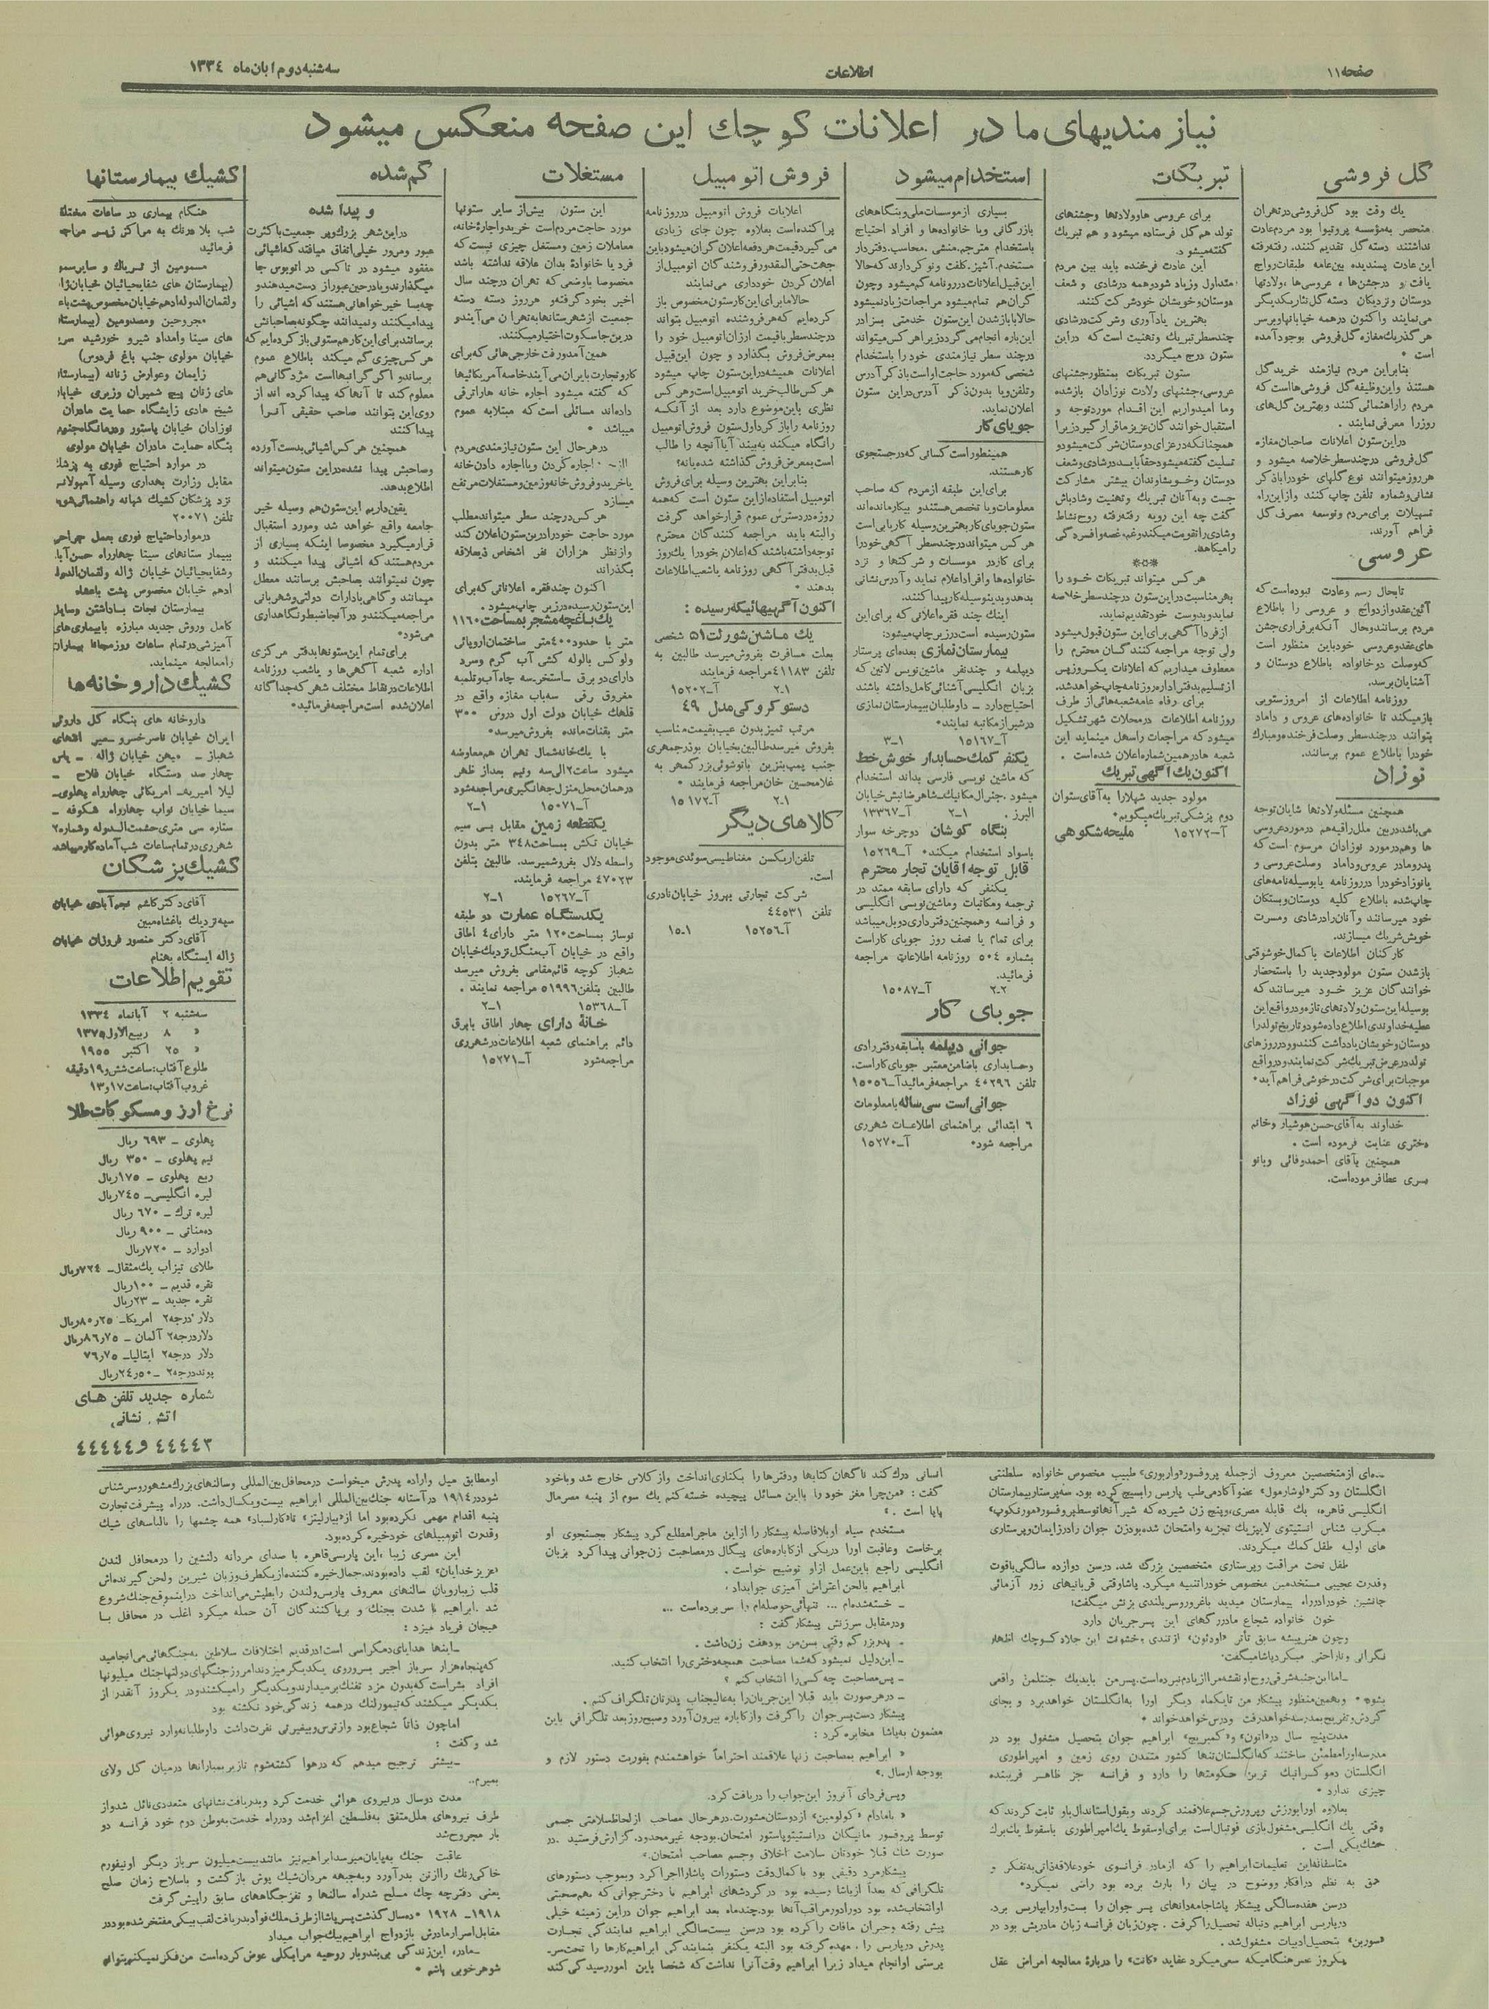 صفحه ۱۱
اطلاعات
سه‌شنبه دوم ابان‌ماه ۱۳۳٤
نیازمندیهای ما در اعلانات کوچك این صفحه منعکس میشود
گل فروشی
یك وقت بود گل‌فروشی در تهران
منحصر به مؤسسه پروتیوا بود مردم عادت
نداشتند دسته گل تقدیم کنند. رفته‌رفته
این عادت پسندیده بین عامه طبقات رواج
یافت و در جشن‌ها ، عروسی‌ها ، ولادتها
دوستان و نزدیکان دسته گل نثار یکدیگر
می‌نمایند واکنون در همه خیابانها و برسر
هر گذر یك مغازه گل‌فروشی بوجود آمده
است •
بنابراین مردم نیازمند خرید گل
هستند و این وظیفه گل فروشی‌ها است که
مردم را راهنمائی کنند و بهترین گل‌های
روز را معرفی نمایند .
در این ستون اعلانات صاحبان مغازه
گل‌فروشی در چند سطر خلاصه میشود و
هر روز میتوانند نوع گلهای خود را با ذکر
نشانی و شماره تلفن چاپ کنند و از این راه
تسهیلات برای مردم و توسعه مصرف گل
فراهم آورند.
عروسی
تا بحال رسم و عادت نبوده است که
آئین عقد و ازدواج و عروسی را باطلاع
مردم برسانند و حال آنکه برقراری جشن
های عقد و عروسی خود باین منظور است
که وصلت دو خانواده باطلاع دوستان و
آشنایان برسد.
روزنامه اطلاعات از امروز ستونی
باز میکند تا خانواده‌های عروس و داماد
بتوانند در چند سطر وصلت فرخنده و مبارك
خود را باطلاع عموم برسانند.
نوزاد
همچنین مسئله ولادتها شایان توجه
می‌باشد در بین ملل راقیه هم در مورد عروسی
ها و هم در مورد نوزادان مرسوم است که
پدر و مادر عروس و داماد وصلت عروسی و
یا نوزاد خود را در روزنامه یا بوسیله نامه‌های
چاپ شده باطلاع کلیه دوستان و بستگان
خود میرسانند و آنان را در شادی و مسرت
خویش شریك میسازند.
کارکنان اطلاعات با کمال خوشوقتی
باز شدن ستون مولود جدید را باستحضار
خوانندگان عزیز خود میرسانند که
بوسیله این ستون ولادتهای تازه و در واقع این
عطیه خداوندی اطلاع داده شود و تاریخ تولد را
دوستان و خویشان یادداشت کنند و در روزهای
تولد در عرض تبریك شرکت نمایند و در واقع
موجبات برای شرکت در خوشی فراهم آید•
اکنون دو آگهی نوزاد
خداوند به آقای حسن هوشیار و خانم
دختری عنایت فرموده است .
همچنین بآقای احمد وفائی و بانو
پسری عطا فرموده است.
تبریکات
برای عروسی ها و ولادتها و جشنهای
تولد هم گل فرستاده میشود و هم تبریك
گفته میشود.
این عادت فرخنده باید بین مردم
متداول و زیاد شود و همه در شادی و شعف
دوستان و خویشان خود شرکت کنند.
بهترین یادآوری و شرکت در شادی
چند سطر تبریك و تهنیت است که در این
ستون درج میگردد.
ستون تبریکات بمنظور جشنهای
عروسی، جشنهای ولادت نوزادان باز شده
و ما امیدواریم این اقدام مورد توجه و
استقبال خوانندگان عزیز ما قرار گیرد زیرا
همچنانکه در عزای دوستان شرکت میشود و
تسلیت گفته میشود حقاً باید در شادی و شعف
دوستان و خویشاوندان بیشتر مشارکت
جست و به آنان تبریك و تهنیت و شادباش
گفت چه این رویه رفته‌رفته روح نشاط
و شادی را تقویت میکند و غم، غصه و افسردگی
را میکاهد.
***
هر کس میتواند تبریکات خود را
بهر مناسبت در این ستون در چند سطر خلاصه
نماید و بدوست خود تقدیم نماید.
از فردا آگهی برای این ستون قبول میشود
ولی توجه مراجعه کنندگان محترم را
معطوف میداریم که اعلانات یکروز پس
از تسلیم بدفتر اداره روزنامه چاپ خواهد شد.
برای رفاه عامه شعبه‌هائی از طرف
روزنامه اطلاعات در محلات شهر تشکیل
میشود که مراجعات را سهل مینماید این
شعبه‌ها در همین شماره اعلان شده است .
اکنون یك آگهی تبریك
مولود جدید شهلا را به آقای ستوان
دوم پزشکی تبریك میگویم•
آ–۱٥۲۷۲ ملیحه شکوهی
استخدام میشود
بسیاری از موسسات ملی و بنگاههای
بازرگانی و یا خانواده‌ها و افراد احتیاج
باستخدام مترجم، منشی ،محاسب، دفتردار
مستخدم. آشپز. کلفت و نوکر دارند که حالا
این قبیل اعلانات در روزنامه کم میشود و چون
گران هم تمام میشود مراجعات زیاد نمیشود
حالا با باز شدن این ستون خدمتی بسزا در
این باره انجام می‌گردد زیرا هر کس میتواند
در چند سطر نیازمندی خود را باستخدام
شخصی که مورد حاجت او است با ذکر آدرس
و تلفن و یا بدون ذکر آدرس در این ستون
اعلان نماید.
جویای کار
همینطور است کسانی که در جستجوی
کار هستند.
برای این طبقه از مردم که صاحب
معلومات و یا تخصص هستند و بیکار مانده‌اند
ستون جویای کار بهترین وسیله کاریابی است
هر کس میتواند در چند سطر آگهی خود را
برای کار در موسسات و شرکتها و نزد
خانواده‌ها و افراد اعلام نماید و آدرس نشانی
بدهد و بدینوسیله کار پیدا کنند.
اینك چند فقره اعلانی که برای این
ستون رسیده است در زیر چاپ میشود:
بیمارستان نمازی بعده‌ای پرستار
دیپلمه و چند نفر ماشین نویس لاتین که
بزبان انگلیسی آشنائی کامل داشته باشند
احتیاج دارد – داوطلبان بیمارستان نمازی
در شیراز مکاتبه نمایند•
آ–۱٥۱٦۷ ۱–۳
یکنفر کمك حسابدار خوش خط
که ماشین نویسی فارسی بداند استخدام
میشود. جنرال مکانیك– شاهرضا نبش خیابان
البرز . ۱–۲ آ–۱۳۳٦۷
بنگاه کوشان دوچرخه سوار
باسواد استخدام میکند• آ–۱٥۲٦۹
قابل توجه آقایان تجار محترم
یکنفر که دارای سابقه ممتد در
ترجمه و مکاتبات و ماشین نویسی انگلیسی
و فرانسه و همچنین دفترداری دوبل میباشد
برای تمام یا نصف روز جویای کار است
بشماره ٥۰٤ روزنامه اطلاعات مراجعه
فرمائید.
۲–۲ آ–۱٥۰۸۷
جویای کار
جوانی دیپلمه با سابقه دفترداری
و حسابداری با ضامن معتبر جویای کار است.
تلفن ٤۰۲۹٦ مراجعه فرمائید آ–۱٥۰٥٦
جوانی است سی ساله با معلومات
٦ ابتدائی براهنمای اطلاعات شهرری
مراجعه شود• آ–۱٥۲۷۰
فروش اتومبیل
اعلانات فروش اتومبیل در روزنامه
پراکنده است بعلاوه چون جای زیادی
می‌گیرد قیمت هر دفعه اعلان گران میشود باین
جهت حتی‌المقدور فروشندگان اتومبیل از
اعلان کردن خودداری می‌نمایند
حالا ما برای این کار ستون مخصوص باز
کرده‌ایم که هر فروشنده اتومبیل بتواند
در چند سطر با قیمت ارزان اتومبیل خود را
بمعرض فروش بگذارد و چون این قبیل
اعلانات همیشه در این ستون چاپ میشود
هر کس طالب خرید اتومبیل است و هر کس
نظری باین موضوع دارد بعد از آنکه
روزنامه را باز کرد اول ستون فروش اتومبیل
را نگاه میکند به‌بیند آیا آنچه را طالب
است بمعرض فروش گذاشته شده یانه؟
بنابراین بهترین وسیله برای فروش
اتومبیل استفاده از این ستون است که همه
روزه در دسترس عموم قرار خواهد گرفت
والبته باید مراجعه کنندگان محترم
توجه داشته باشند که اعلان خود را یك روز
قبل بدفتر آگهی روزنامه یا شعب اطلاعات
بدهند •
اکنون آگهیهائیکه رسیده :
یك ماشین شورلت ٥۱ شخصی
بعلت مسافرت بفروش میرسد طالبین به
تلفن ٤۱۱۸۳ مراجعه فرمایند
۱–۲ آ–۱٥۲۰۲
دستوکروکی مدل ٤۹
مرتب تمیز بدون عیب بقیمت مناسب
بفروش میرسد طالبین بخیابان بوذرجمهری
جنب پمپ بنزین باتوشوئی بزرگمهر به
غلامحسین خان مراجعه فرمایند •
۱–۲ آ–۱٥۱۷۲
کالاهای دیگر
تلفن اریکسن مغناطیسی سوئدی موجود
است.
شرکت تجارتی بهروز خیابان نادری
تلفن ٤٤٥۳۱
آ–۱٥۲٥٦ ۱–۱٥
مستغلات
این ستون بیش از سایر ستونها
مورد حاجت مردم است خرید و اجاره خانه،
معاملات زمین و مستغل چیزی نیست که
فرد یا خانوادهٔ بدان علاقه نداشته باشد
مخصوصا باوضعی که تهران در چند سال
اخیر بخود گرفته و هر روز دسته دسته
جمعیت از شهرستانها به تهران می‌آیند و
در این جا سکونت اختیار میکنند.
همین آمد و رفت خارجی هائی که برای
کار و تجارت بایران می‌آیند خاصه آمریکائیها
که گفته میشود اجاره خانه ها را ترقی
داده‌اند مسائلی است که مبتلا به عموم
میباشد •
در هر حال این ستون نیازمندی مردم
اجاره کردن و یا اجاره دادن خانه
یا خرید و فروش خانه و زمین و مستغلات مرتفع
میسازد
هر کس در چند سطر میتواند مطلب
مورد حاجت خود را در این ستون اعلان کند
و از نظر هزاران نفر اشخاص ذیعلاقه
بگذراند
اکنون چند فقره اعلاناتی که برای
این ستون رسیده در زیر چاپ میشود .
یك باغچه مشجر بمساحت ۱۱٦۰
متر با حدود ٤۰۰متر ساختمان اروپائی
ولوکس با لوله کشی آب گرم و سرد
دارای دو برق – استخر – سه چاه آب و تلمبه
مفروق رقی سه باب مغازه واقع در
قلهك خیابان دولت اول دروس ۳۰۰
متر بقنات مانده بفروش میرسد•
با یك خانه شمال تهران هم معاوضه
میشود ساعت ۲ الی سه ونیم بعد از ظهر
در همان محل منزل جهانگیری مراجعه شود
آ–۱٥۰۷۱ ۱–۲
یکقطعه زمین مقابل بی سیم
خیابان تکش بمساحت ۳٤۸ متر بدون
واسطه دلال بفروش میرسد. طالبین بتلفن
٤۷۰۲۳ مراجعه فرمایند.
آ–۱٥۲٦۷ ۱–۲
یکدستگاه عمارت دو طبقه
نوساز بمساحت ۱۲۰ متر دارای ٤ اطاق
واقع در خیابان آب منگل نزدیك خیابان
شهباز کوچه قائم مقامی بفروش میرسد
طالبین بتلفن ٥۱۹۹٦ مراجعه نمایند .
آ–۱٥۳٦۸ ۱–۲
خانهٔ دارای چهار اطاق با برق
دائم براهنمای شعبه اطلاعات در شهرری
مراجعه شود آ–۱٥۲۷۱
گم شده
و پیدا شده
در این شهر بزرگ و پر جمعیت با کثرت
عبور و مرور خیلی اتفاق میافتد که اشیائی
مفقود میشود در تاکسی در اتوبوس جا
میگذارند و یا در حین عبور از دست میدهند و
چه بسا خیرخواهانی هستند که اشیائی را
پیدا میکنند و نمیدانند چگونه بصاحبانش
برسانند برای این کار هم ستونی باز کرده‌ایم که
هر کس چیزی گم میکند باطلاع عموم
برساند و اگر گرانبها است مژدگانی هم
معلوم کند تا آنها که پیدا کرده اند از
روی این بتوانند صاحب حقیقی آنرا
پیدا کنند
همچنین هر کس اشیائی بدست آورده
و صاحبش پیدا نشده در این ستون میتواند
اطلاع بدهد.
یقین داریم این ستون هم وسیله خیر
جامعه واقع خواهد شد و مورد استقبال
قرار میگیرد مخصوصا اینکه بسیاری از
مردم هستند که اشیائی پیدا میکنند و
چون نمیتوانند بصاحبش برسانند معطل
میمانند و گاهی بادارات دولتی و شهربانی
مراجعه میکنند و در آنجا ضبط و نگاهداری
می‌شود•
برای تمام این ستونها بدفتر مرکزی
اداره شعبه آگهی‌ها و یا شعب روزنامه
اطلاعات در نقاط مختلف شهر که جداگانه
اعلان شده است مراجعه فرمائید•
کشیك بیمارستانها
هنگام بیماری در ساعات مختلف
شب بلا درنك به مراکز زیر مراجعه
فرمائید
مسمومین از تریاك و سایر سموم
(بیمارستان های شفا یحیائیان خیابان ژاله
ولقمان الدوله ادهم خیابان مخصوص پشت باغ
مجروحین و مصدومین (بیمارستان
های سینا و امداد شیر و خورشید سرخ
خیابان مولوی جنب باغ فردوس)
زایمان و عوارض زنانه (بیمارستان
های زنان پیچ شمیران وزیری خیابان
شیخ هادی زایشگاه حمایت مادران
نوزادان خیابان پاستور و درمانگاه پنجم
بنگاه حمایت مادران خیابان مولوی
در موارد احتیاج فوری به پزشك
مقابل وزارت بهداری وسیله آمبولانس
نزد پزشکان کشیك شبانه راهنمائی شوید
تلفن ۲۰۰۷۱
در موارد احتیاج فوری بعمل جراحی
بیمارستانهای سینا چهارراه حسن‌آباد
و شفا یحیائیان خیابان ژاله ولقمان الدوله
ادهم خیابان مخصوص پشت باغشاه
بیمارستان نجات با داشتن وسایل
کامل و روش جدید مبارزه با بیماری‌های
آمیزشی در تمام ساعات روز مجانا بیماران
را معالجه مینماید.
کشیك داروخانه‌ها
داروخانه های بنگاه کل داروئی
ایران خیابان ناصرخسرو – میر افتخاری
شهباز – میهن خیابان ژاله – یاس
چهارصد دستگاه خیابان فلاح –
لیلا امیریه– امریکائی چهارراه پهلوی–
سینا خیابان نواب چهارراه شکوفه –
ستاره سی متری حشمت‌الدوله و شماره۲
شهرری در تمام ساعات شب آماده کار میباشد
کشیك پزشکان
آقای دکتر کاظم نجم آبادی خیابان
سپه نزدیك باغشاه مبین
آقای دکتر منصور فروزان خیابان
ژاله ایستگاه بهنام
تقویم اطلاعات
سه‌شنبه ۲ آبانماه ۱۳۳٤
« ۸ ربیع‌الاول ۱۳۷٥
« ۲٥ اکتبر ۱۹٥٥
طلوع آفتاب: ساعت شش و۱۹ دقیقه
غروب آفتاب: ساعت ۱۷ و۱۳
نرخ ارز و مسکوکات طلا
پهلوی – ٦۹۳ ریال
نیم پهلوی – ۳٥۰ ریال
ربع پهلوی – ۱۷٥ریال
لیره انگلیسی– ۷٤٥ریال
لیره ترك – ٦۷۰ ریال
ده‌مناتی – ۹۰۰ ریال
ادوارد – ۷۲۰ریال
طلای تیزاب یك مثقال– ۷۲٤ریال
نقره قدیم – ۱۰۰ریال
نقره جدید – ۲۳ریال
دلار درجه۲ امریکا– ۲٥ر۸۰ریال
دلار درجه۲ آلمان – ۷٥ر۸٦ریال
دلار درجه۲ ایتالیا– ۷٥ر۷٦
پوند درجه۲ –٥۰ر۲٤ریال
شماره جدید تلفن های
آتش نشانی
٤٤٤٤۳ و٤٤٤٤٤
ــه‌ای از متخصصین معروف از جمله پروفسور «واربوری» طبیب مخصوص خانواده سلطنتی
انگلستان و دکتر «لوشارمول» عضو آکادمی طب پاریس را بسیج کرده بود. سه پرستار بیمارستان
انگلیسی قاهره، یك قابله مصری، و پنج زن شیرده که شیر آنها توسط پروفسور «مورنکوپ»
میکرب شناس انستیتوی لایپزیك تجزیه و امتحان شده بود زن جوان را در زایمان و پرستاری
های اولیه طفل کمك میکردند.
طفل تحت مراقبت و پرستاری متخصصین بزرگ شد. در سن دوازده سالگی با قوت
و قدرت عجیبی مستخدمین مخصوص خود را تنبیه میکرد. پاشا وقتی قربانیهای زور آزمائی
جانشین خود را در راه بیمارستان میدید با غرور و سربلندی بزنش میگفت:
خون خانواده شجاع ما در رگهای این پسر جریان دارد
وچون هنرپیشه سابق تآتر «اودئون» از تندی و خشونت این جلاد کوچك اظهار
نگرانی و ناراحتی میکرد پاشا میگفت:
–اما این جنبه شرقی روح او نقشه مرا از یادم نبرده است. پسر من باید یك جنتلمن واقعی
بشود• و بهمین منظور پیشکار من تا یکماه دیگر اورا به انگلستان خواهد برد و بجای
گردش و تفریح بمدرسه خواهد رفت و درس خواهد خواند •
مدت پنج سال در «اتون» و «کمبریج» ابراهیم جوان بتحصیل مشغول بود در
مدرسه اورا مطمئن ساختند که انگلستان تنها کشور متمدن روی زمین و امپراطوری
انگلستان دموکراتیك ترین حکومتها را دارد و فرانسه جز ظاهر فریبنده
چیزی ندارد •
بعلاوه اورا بورزش و پرورش جسم علاقمند کردند و بقول استاندال باو ثابت کردند که
وقتی یك انگلیسی مشغول بازی فوتبال است برای او سقوط یك امپراطوری با سقوط یك برك
خشك یکی است .
متاسفانه این تعلیمات ابراهیم را که از مادر فرانسوی خود علاقه ذاتی به تفکر و
عمق به نظم در افکار و وضوح در بیان را بارث برده بود راضی نمیکرد•
در سن هفده سالگی پیشکار پاشا جامه‌دانهای پسر جوان را بست و اورا بپاریس برد.
در پاریس ابراهیم دنباله تحصیل را گرفت . چون زبان فرانسه زبان مادریش بود در
«سوربن» بتحصیل ادبیات مشغول شد .
یکروز عصر هنگامیکه سعی میکرد عقاید «کانت» را دربارهٔ معالجه امراض عقل
انسانی درك کند ناگهان کتابها و دفترها را بکناری انداخت و از کلاس خارج شد و با خود
گفت : «من چرا مغز خود را با این مسائل پیچیده خسته کنم یك سوم از پنبه مصر مال
پاپا است .»
مستخدم سیاه او بلافاصله پیشکار را از این ماجرا مطلع کرد پیشکار بجستجوی او
برخاست و عاقبت اورا در یکی از کاباره‌های پیگال در مصاحبت زن جوانی پیدا کرد بزبان
انگلیسی راجع باین عمل از او توضیح خواست .
ابراهیم بالحن اعتراض آمیزی جوابداد:
– خسته شده‌ام ... تنهائی حوصله‌ام را سر برده است ...
و در مقابل سرزنش پیشکار گفت :
– پدر بزرگم وقتی بسن من بود هفت زن داشت .
– این دلیل نمیشود که شما مصاحبت همچه دختری را انتخاب کنید.
– پس مصاحبت چه کسی را انتخاب کنم ؟
– در هر صورت باید قبلا این جریان را به عالیجناب پدرتان تلگراف کنم .
پیشکار دست پسر جوان را گرفت و از کاباره بیرون آورد و صبح روز بعد تلگرافی باین
مضمون به پاشا مخابره کرد :
« ابراهیم بمصاحبت زنها علاقمند احتراماً خواهشمندم بفوریت دستور لازم و
بودجه ارسال .»
و پس فردای آنروز این جواب را دریافت کرد.
« با مادام «کولومبن» از دوستان مشورت. در هر حال مصاحب از لحاظ سلامتی جسمی
توسط پروفسور مانیگان در انستیتو پاستور امتحان. بودجه غیر محدود. گزارش فرستید . در
صورت شك قبلا خودتان سلامت اخلاق و جسم مصاحب امتحان.»
پیشکار مرد دقیقی بود با کمال دقت دستورات پاشا را اجرا کرد و بموجب دستورهای
تلگرافی که بعداً از پاشا رسیده بود در گردشهای ابراهیم با دختر جوانی که هم صحبتی
او انتخاب شده بود دورادور مراقب آنها بود. چند ماه بعد ابراهیم جوان در این زمینه خیلی
پیش رفته و جبران مافات را کرده بود در سن بیست سالگی ابراهیم نمایندگی تجارت
پدرش در پاریس را بعهده گرفته بود البته یکنفر بنمایندگی ابراهیم کارها را تحت سر-
پرستی او انجام میداد زیرا ابراهیم وقت آنرا نداشت که شخصا باین امور رسیدگی کند
او مطابق میل و اراده پدرش میخواست در محافل بین‌المللی و سالنهای بزرك مشهور و سرشناس
شود در ۱۹۱٤ در آستانه جنك بین‌المللی ابراهیم بیست و یکسال داشت. در راه پیشرفت تجارت
پنبه اقدام مهمی نکرده بود اما از «بیاریتز» تا «کارلسباد» همه چشمها را با لباسهای شیك
و قدرت اتومبیلهای خود خیره کرده بود.
این مصری زیبا ،این پارسی قاهره با صدای مردانه دلنشین را در محافل لندن
«عزیز خدایان» لقب داده بودند. جمال خیره کننده از یکطرف و زبان شیرین و لحن گیرنده‌اش
قلب زیبارویان سالنهای معروف پاریس و لندن را بطپش می‌انداخت در این موقع جنك شروع
شد .ابراهیم با شدت بجنك و برپا کنندگان آن حمله میکرد اغلب در محافل با
هیجان فریاد میزد :
–اینها هدایای دمکراسی است! در قدیم اختلافات سلاطین به جنگهائی می‌انجامید
که پنجاه هزار سرباز اجیر بسر و روی یکدیگر میزدند امروز جنگهای دولتها جنك میلیونها
افراد بشر است که بدون مزد تفنك برمیدارند و یکدیگر را میکشند و در یکروز آنقدر از
یکدیگر میکشند که تیمورلنك در همه زندگی خود نکشته بود
اما چون ذاتاً شجاع بود و از ترس و بیغیرتی نفرت داشت داوطلبانه وارد نیروی هوائی
شد و گفت :
–بیشتر ترجیح میدهم که در هوا کشته شوم تا زیر بمبارانها در میان گل و لای
بمیرم..
مدت دو سال در نیروی هوائی خدمت کرد و بدریافت نشانهای متعددی نائل شد و از
طرف نیروهای ملل متفق به فلسطین اعزام شد و در راه خدمت به وطن دوم خود فرانسه دو
بار مجروح شد
عاقبت جنك به پایان میرسد ابراهیم نیز مانند بیست میلیون سرباز دیگر اونیفورم
خاکی رنك را از تن بدر آورد و به جبهه مردان شیك پوش بازگشت و با سلاح زمان صلح
یعنی دفترچه چك مسلح شد راه سالنها و تفرجگاههای سابق را پیش گرفت
۱۹۱۸– ۱۹۲۸ •ده سال گذشت پسر پاشا از طرف ملك فواد بدریافت لقب بیکی مفتخر شده بود در
مقابل اصرار مادرش بازدواج ابراهیم بیك جواب میداد
–مادر، این زندگی بی بند و بار روحیه مرا بکلی عوض کرده است من فکر نمیکنم بتوانم
شوهر خوبی باشم •